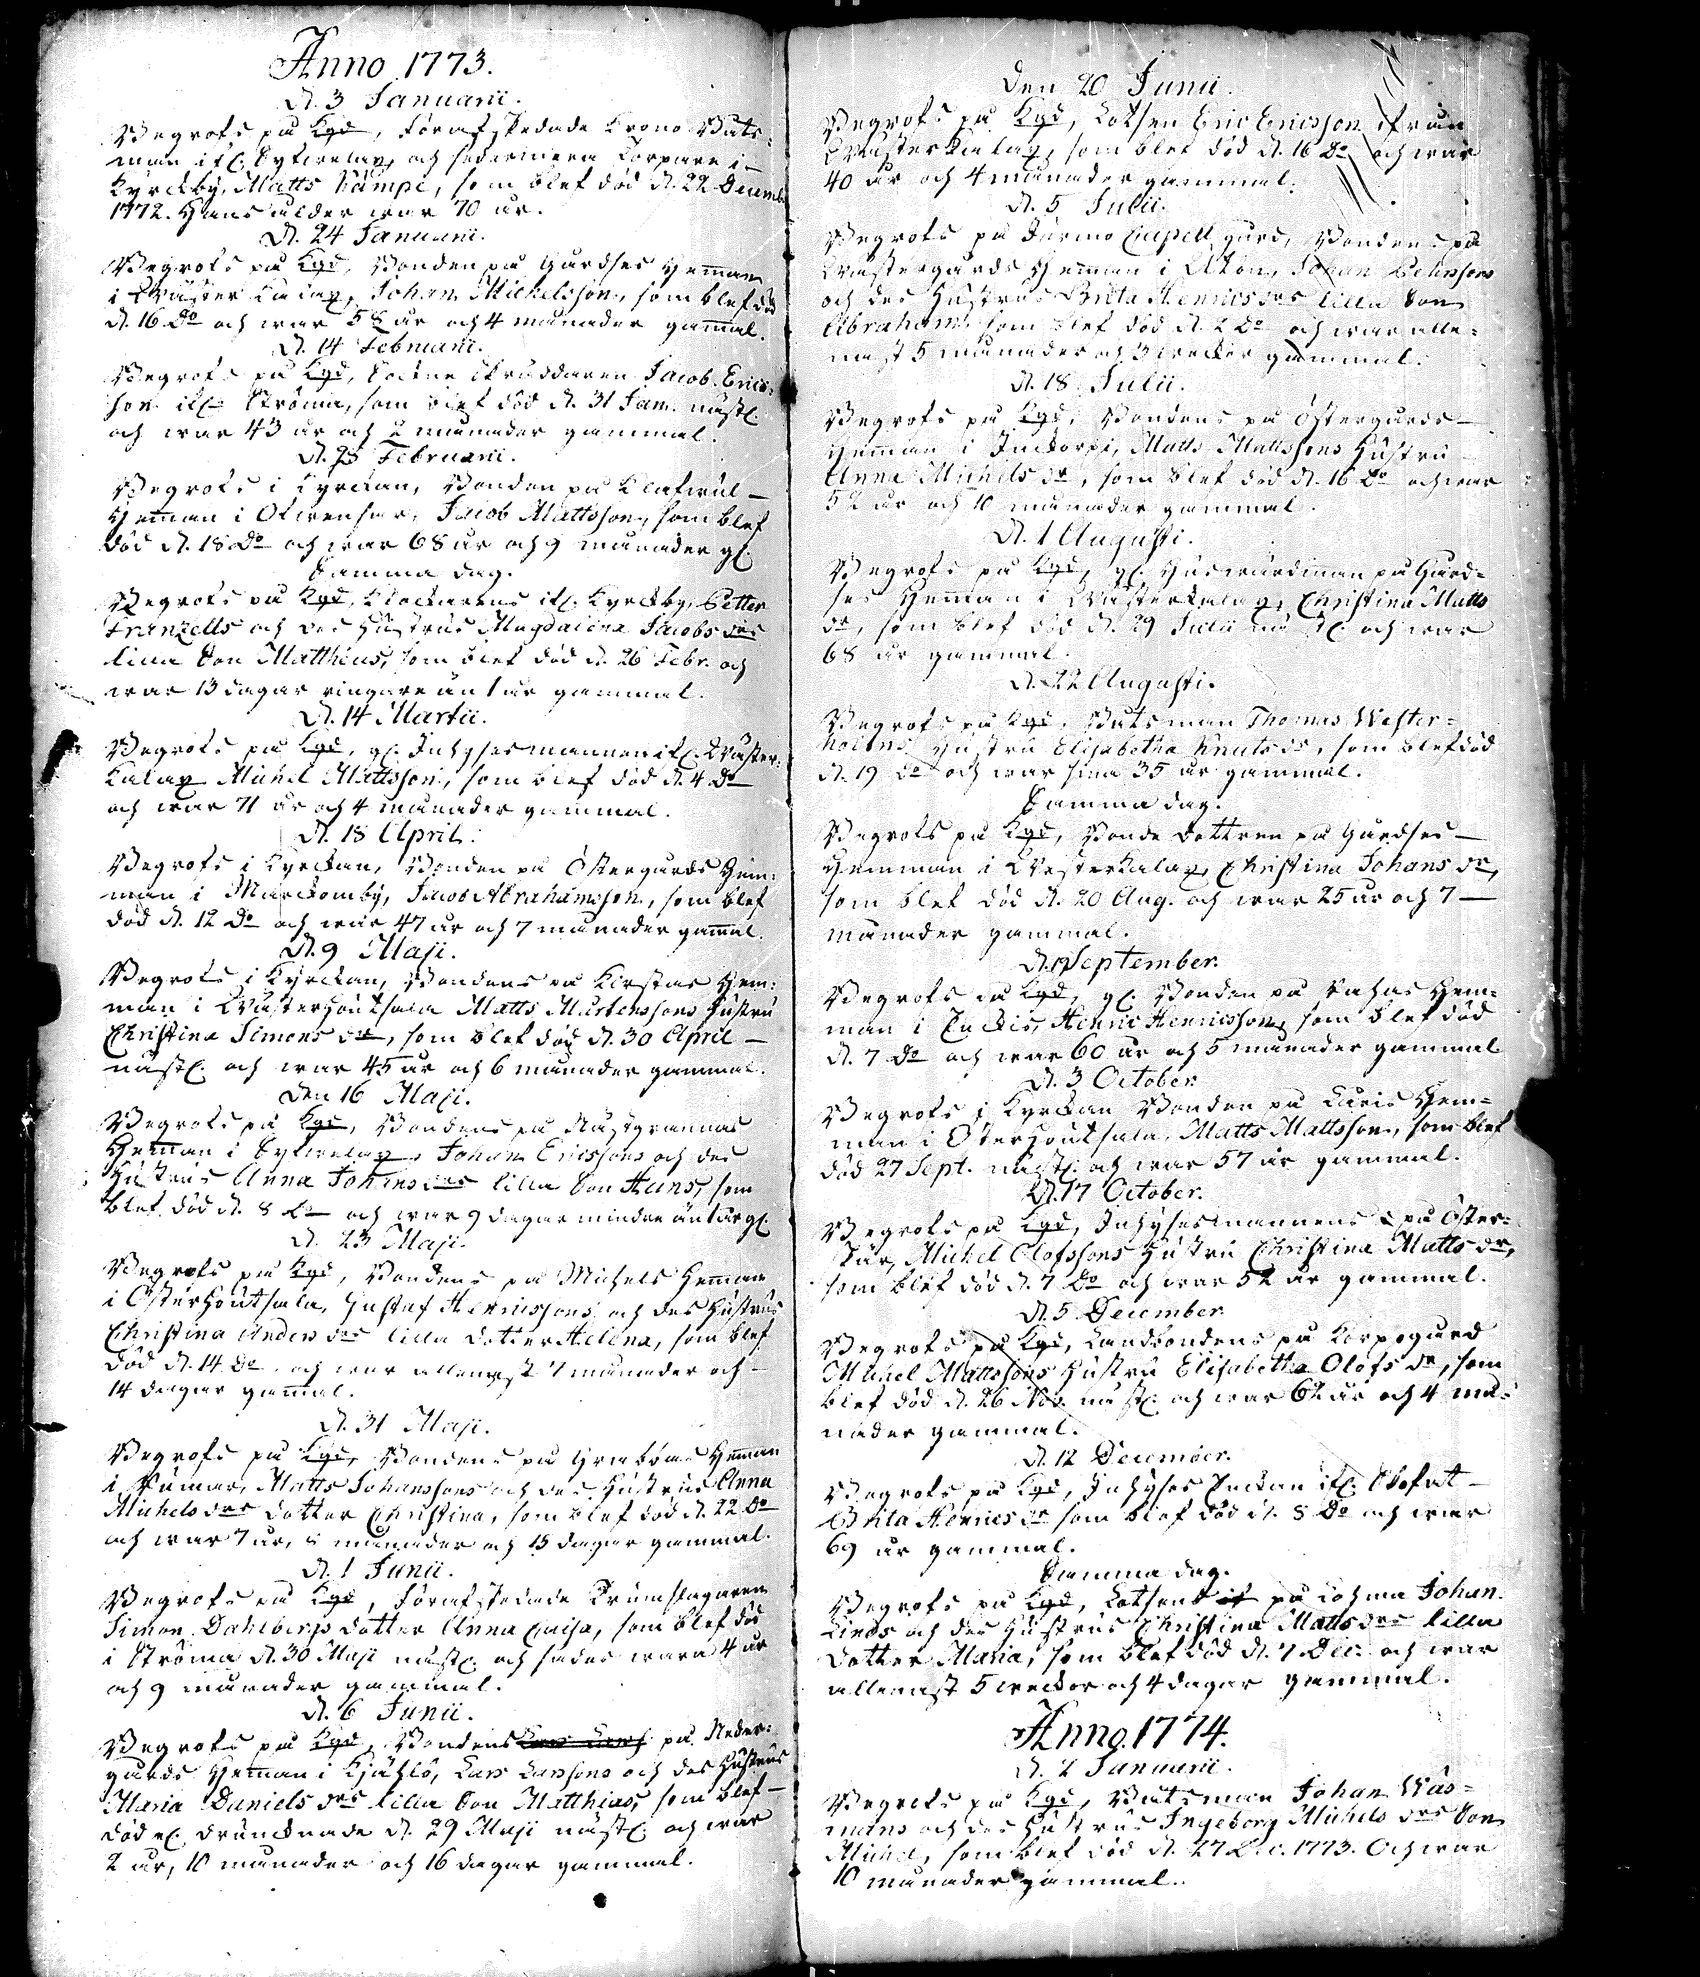 Anno 1773.
D. 3 Januarii.
Begrofs på Kgd, förafskedade Krono Båts-
man if. Sytwelax, och sedermera Torpare i
Kyrckby, Matts Kämpe, som blef död d. 22 Decemb.
1772. Hans ålder war 70 år.
D. 24 Januarii.
Begrofs på Kgd, Bonden på Gårdses Hemman
i Wäster Kalax, Johan Michelsson, som blef död
d. 16 Do och war 58 år och 4 månader gammal.
D. 14 Februarii.
Begrofs på Kgd, Sockne skräddaren Jacob Erics-
son if. Ströma, som blef död d. 31 Jan. nästl.
och war 43 år och 2 månader gammal.
D. 28 Februarii.
Begrofs i Kyrckan, Bonden på Klafwul
Hemman i Olwensar, Jacob Mattsson, som blef
död d. 18 Do och war 68 år och 9 månader gl.
Samma dag.
Begrofs på Kgd, Klockarens if. Kyrckby, Petter
Franzells och des Hustrus Magdalena Jacobs drs
lilla Son Matthæus, som blef död d. 26 Febr. och
war 13 dagar ringare än 1 år gammal.
D. 14 Martii.
Begrofs på Kgd, gl. Inhyses mannen if. Wäster-
Kalax Michel Mattsson, som blef död d. 4 Do
och war 71 år och 4 månader gammal.
D. 18 April.
Begrofs i Kyrckan, Bonden på Östergårds Hem-
man i Marckomby, Jacob Abrahamsson, som blef
död d. 12 Do och war 47 år och 7 månader gammal.
D. 9 Maji.
Begrofs i Kyrckan, Bondens på Kirstas Hem-
man i Wästerhoutsala Matts Mårtenssons Hustru
Christina Simons dr, som blef död d. 30 April
nästl. och war 45 år och 6 månader gammal.
Den 16 Maji.
Begrofs på Kgd, Bondens på Nästgrannas
Hemman i Sytwelax, Johan Ericssons och des
Hustrus Anna Johans drs lilla Son Hans, som
blef död d. 8 Do och war 9 dagar mindre än 1 år gl.
D. 23 Maji.
Begrofs på Kgd, Bondens på Michels Hemman
i Österhoutsala, Gustaf Henricssons och des Hustrus
Christina Anders drs lilla dotter Helena, som blef
död d. 14 Do och war allenast 7 månader och
14 dagar gammal.
D. 31 Maji.
Begrofs på Kgd, Bondens på Grabbas Hemman
i Wamar, Matts Johanssons och des Hustrus Anna
Michels drs dotter Christina, som blef död d. 22 Do
och war 7 år, 8 månader och 15 dagar gammal.
D. 1 Junii.
Begrofs på Kgd, förafskedade Trumslagaren
Simon Dahlbergs dotter Anna Caisa, som blef död
i Ströma d. 30 Maji nästl. och sades wara 4 år
och 9 månader gammal.
D. 6 Junii.
Begrofs på Kgd, Bondens på Neder-
gårds Hemman i Kjählö, Lars Larssons och des Hustrus
Maria Daniels drs lilla Son Matthias, som blef
död el. druncknade d. 29 Maji nästl. och war
2 år, 10 månader och 16 dagar gammal.
Den 20 Junii.
Begrofs på Kgd, Lotsen Eric Ericsson ifrån
Wäster Kalax, som blef död d. 16 Do och war
40 år och 4 månader gammal.
D. 5 Julii.
Begrofs på Jurmo Capell gård, Bondens på
Wästergårds Hemman i Utön, Johan Johanssons
och des Hustrus Brita Henrics drs lilla Son
Abraham, som blef död d. 2 Do och war alle-
nast 5 månader och 3 weckor gammal.
D. 18 Julii.
Begrofs på Kgd, Bondens på Östergårds
Hemman i Inckorpi, Matts Mattssons Hustru
Anna Michels dr, som blef död d. 16 Do och war
52 år och 10 månader gammal.
D. 1 Augusti.
Begrofs på Kgd, gl. Huswärdinnan på Gård-
ses Hemman i Wästerkalax, Christina Matts
dr, som blef död d. 29 Julii nästl. och war
68 år gammal.
D. 22 Augusti.
Begrofs på Kgd, Båtsman Thomas Wester-
holms Hustru Elisabetha Knuts dr, som blef död
d. 19 Do och war sina 35 år gammal.
Samma dag.
Begrofs på Kgd, Bonde dottren på Gårdses
Hemman i Westerkalax, Christina Johans dr,
som blef död d. 20 Aug. och war 25 år och 7
månader gammal.
D. 12 September.
Begrofs på Kgd, gl. Bonden på Hem-
man i Henric Henricsson, som blef död
d. 7 Do och war 60 år och 5 månader gammal
D. 3 October.
Begrofs i Kyrckan Bonden på Hem-
man i Österhoutsala, Matts Mattsson, som blef
död 27 Sept. nästl. och war 57 år gammal.
D. 17 October.
Begrofs på Kgd, Inhyses mannens på Öster-
skär, Michel Olofssons Hustru Christina Matts dr,
som blef död d. 7 Do och war 52 år gammal.
D. 5 December.
Begrofs på Kgd, Landbondens på Korpogård
Michel Mattssons Hustru Elisabetha Olofs dr, som
blef död d. 26 Nov. nästl. och war 62 år och 4 må-
nader gammal.
D. 12 December.
Begrofs på Kgd, Inhyses Enckan if.
Brita Henrics dr som blef död d. 8 Do och war
69 år gammal.
Samma dag.
Begrofs på Kgd, Lotsens på Lohma Johan
Linds och des Hustrus Christina Matts drs lilla
dotter Maria, som blef död d. 7 Dec. och war
allenast 5 weckor och 4 dagar gammal.
Anno 1774.
D. 2 Januarii.
Begrofs på Kgd, Båtsman Johan Wäs-
mans och des Hustrus Ingeborg Michels drs Son
Michel, som blef död d. 27 Dec. 1773. Och war
10 månader gammal.